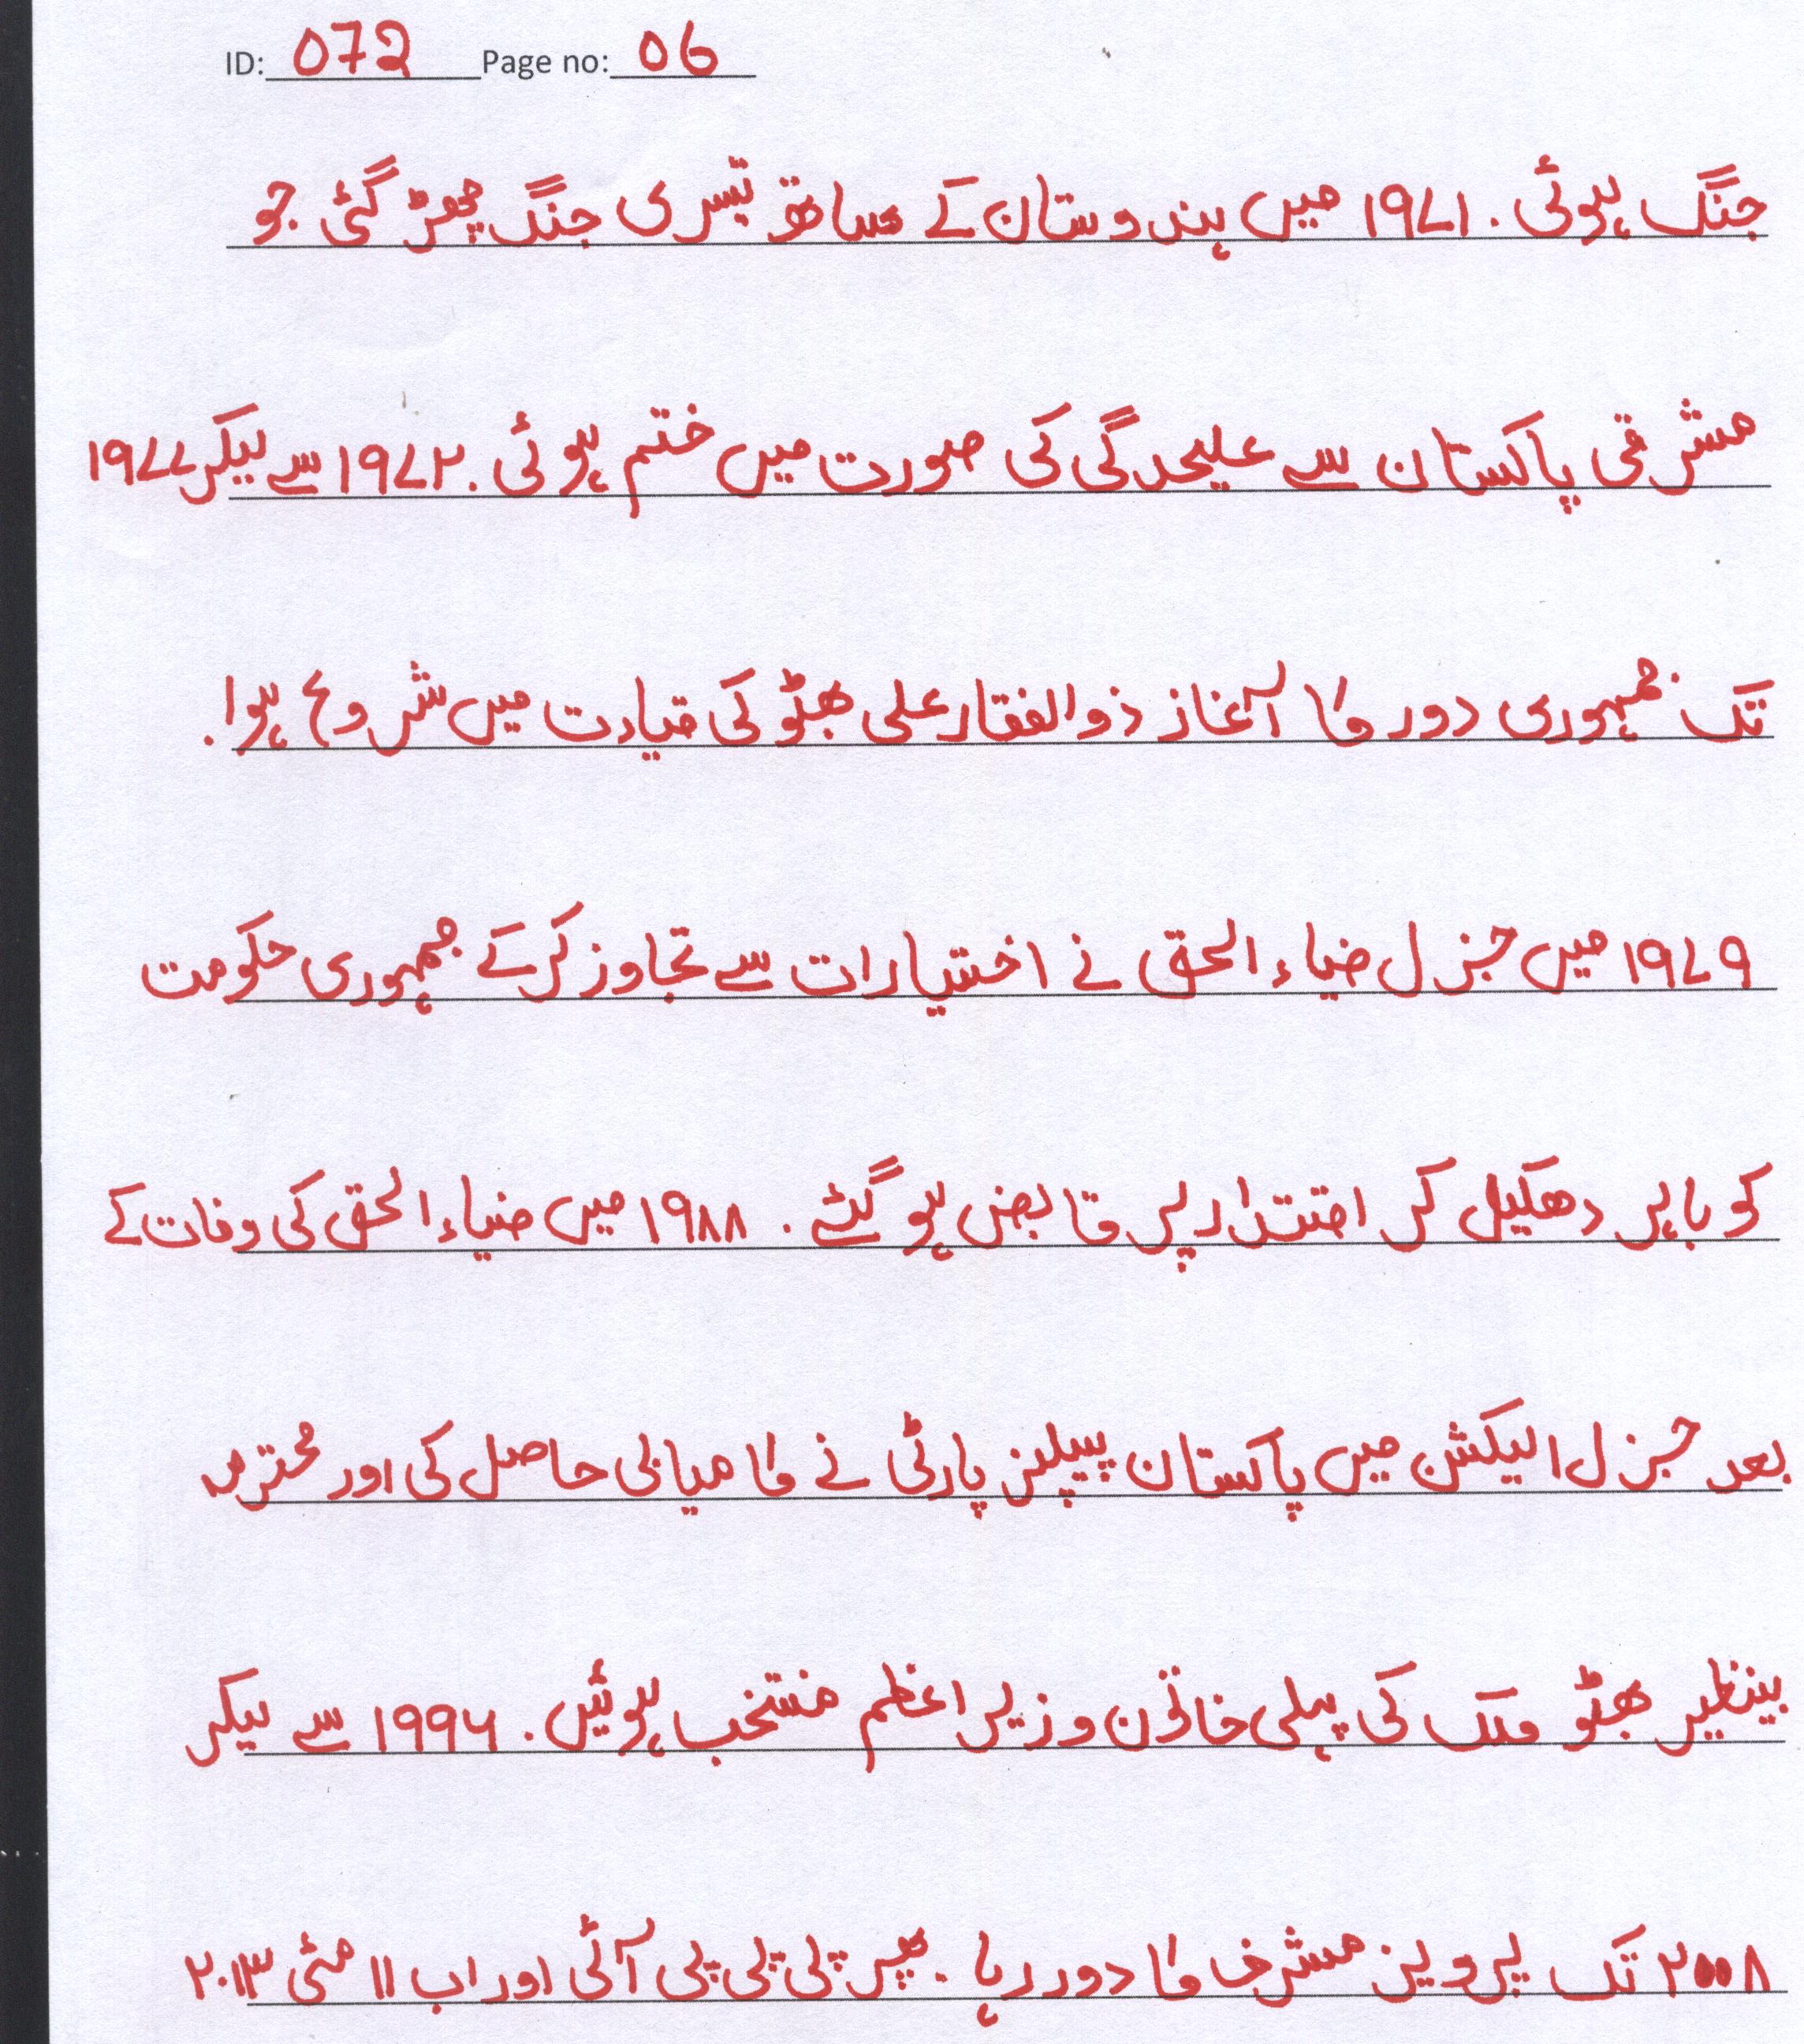 ID: 072 Page no: 06
جنگ ہوئی. ۱۹۷۱ میں ہندوستان کے ساتھ تیسری جنگ چھڑ گئی جو
مشرقی پاکستان سے علیحدگی کی صورت میں ختم ہوئی. ۱۹۷۲ سے لیکر ۱۹۷۷
تک جمہوری دور کا آغاز ذوالفقار علی بھٹو کی قیادت میں شروع ہوا.
۱۹۷۹ میں جنرل ضیاء الحق نے اختیارات سے تجاوز کرکے جمہوری حکومت
کو باہر دھکیل کر اقتدار پر قابض ہو گئے. ۱۹۸۸ میں ضیاء الحق کی وفات کے
بعد جنرل الیکشن میں پاکستان پیپلز پارٹی نے کامیابی حاصل کی اور محترمہ
بینظیر بھٹو ملک کی پہلی خاتون وزیر اعظم منتخب ہوئیں. ۱۹۹۶ سے لیکر
۲۰۰۸ تک پرویز مشرف کا دور رہا. پھر پی پی پی آئی اور اب ۱۱ مئی ۲۰۱۳